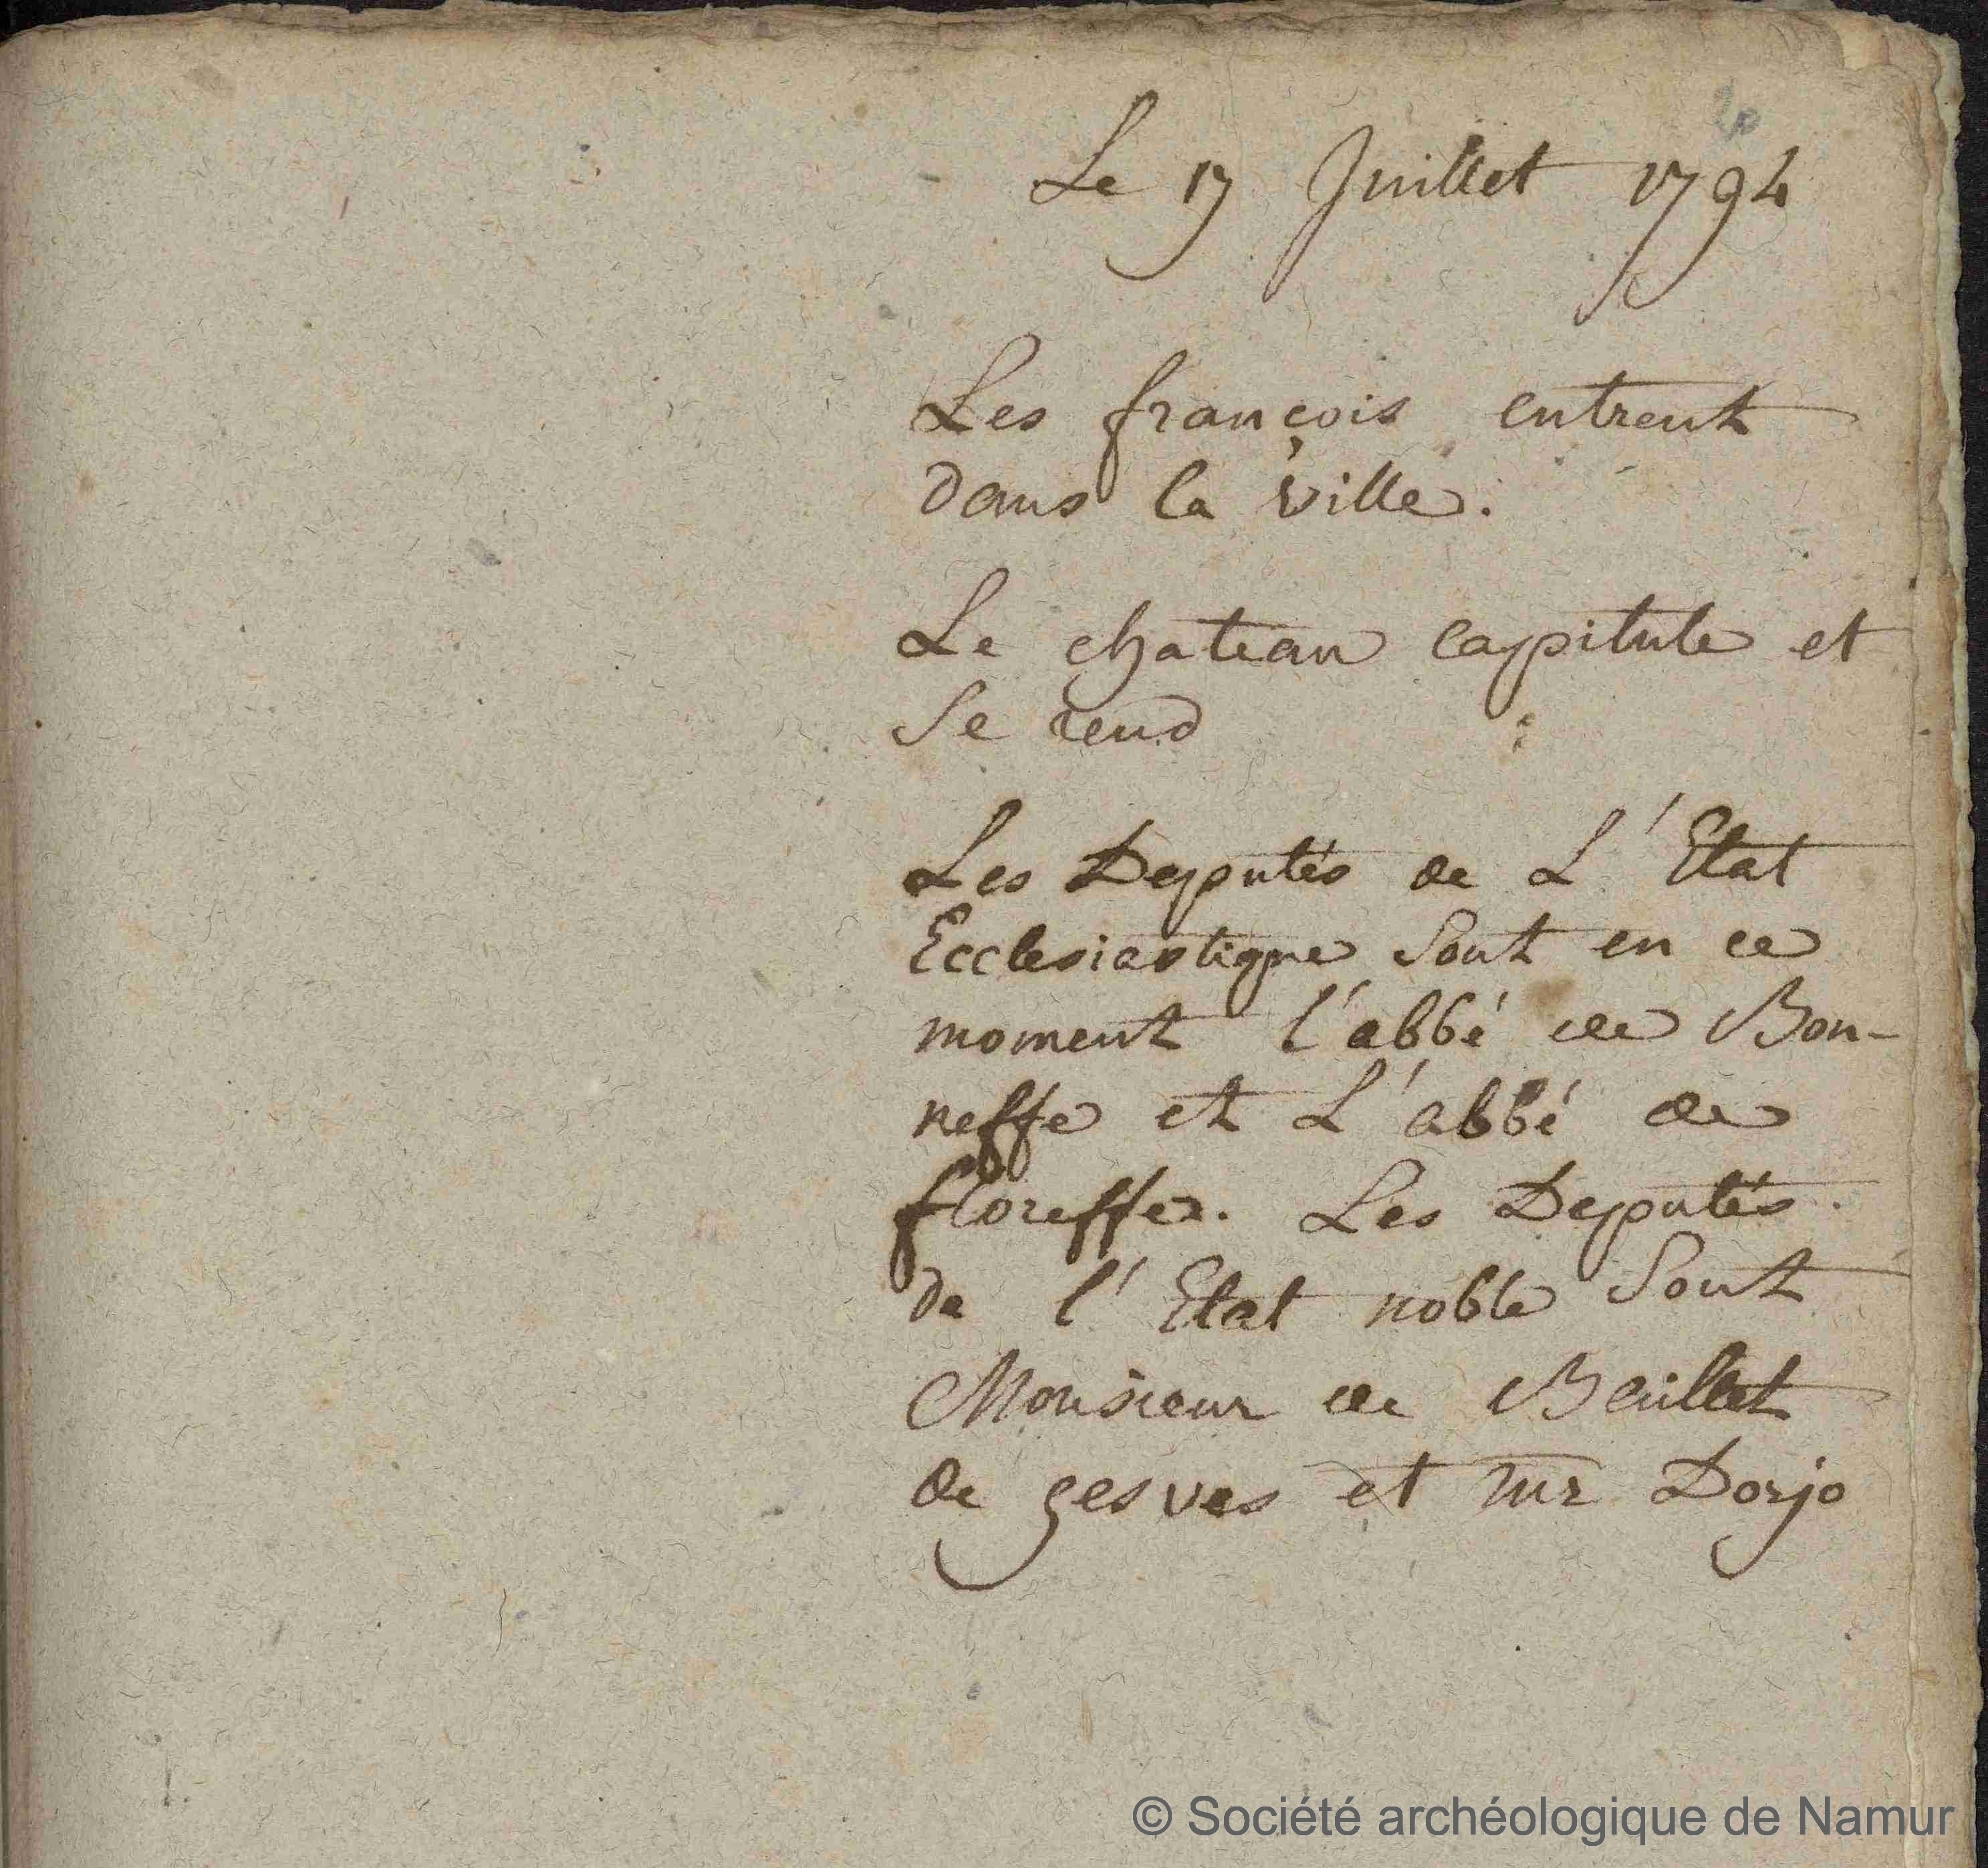 20
Le 17 Juillet 1794
Les françois entrent
dans la ville.
Le chateau capitule et
se rend
Les Deputés de L'Etat
Ecclesiastique sont en ce
moment l'abbé de Bon-
neffe et L'abbé de
floreffe. Les Deputés
de l'Etat noble sont
Monsieur de Baillet
de gesves et mr Dorjo
© Société archéologique de Namur